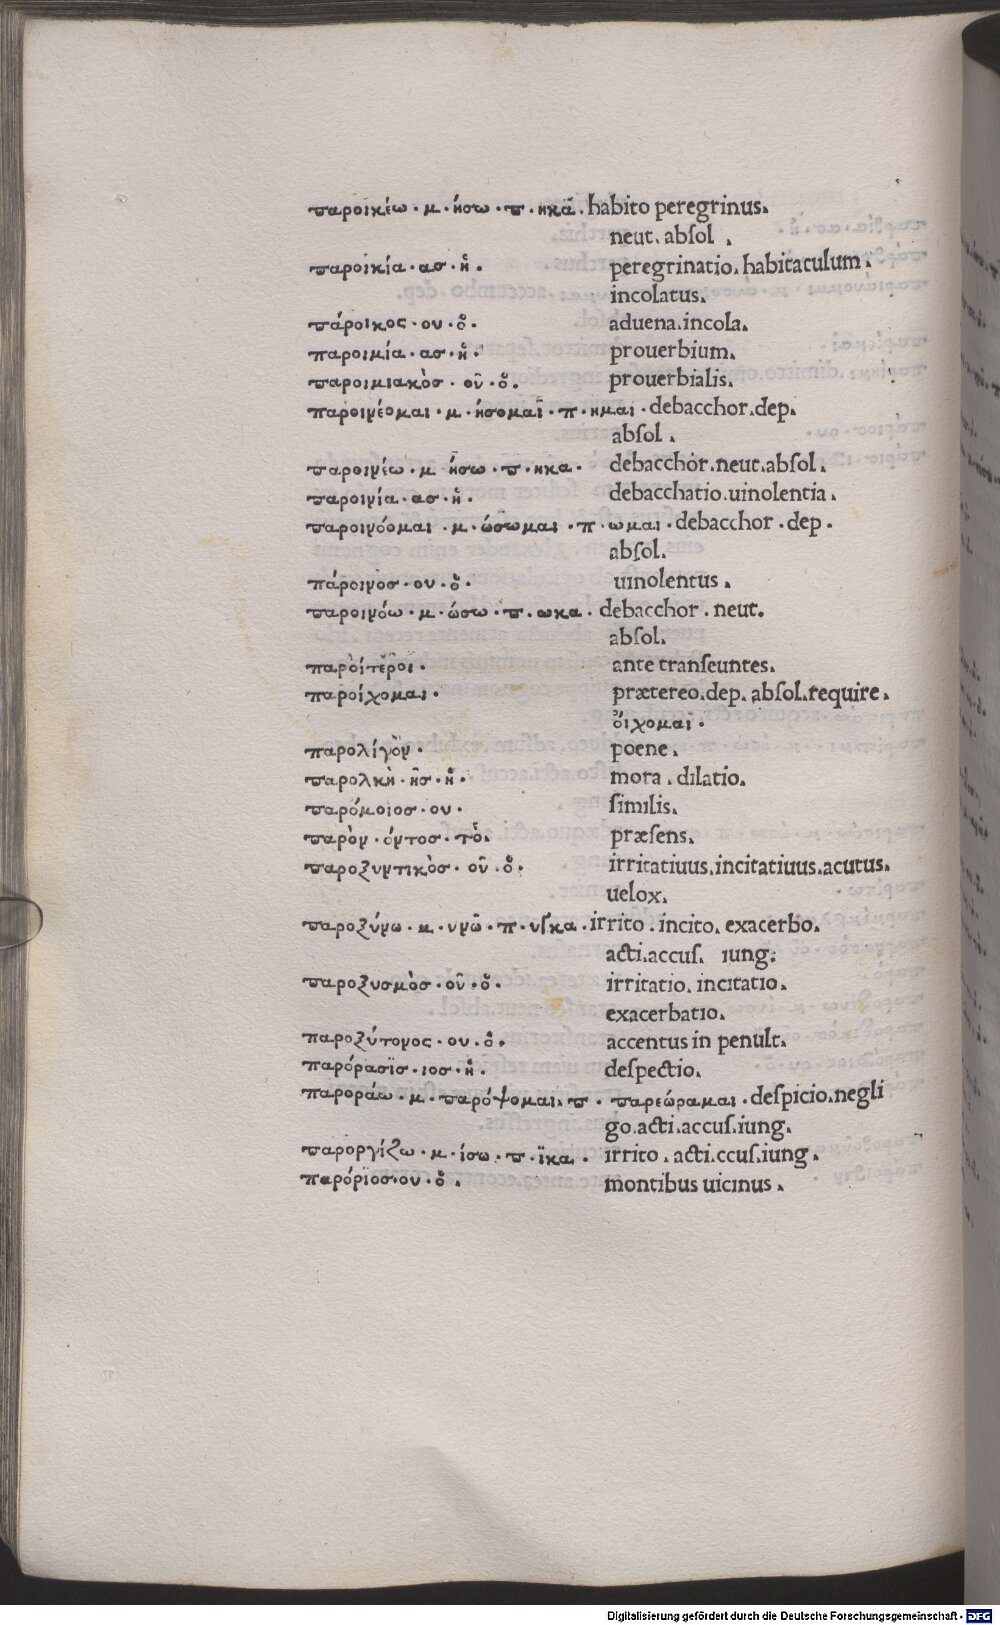 παροικέω · μ · ήσω · π · ηκα̃ · habito peregrinus.
neut. absol .
παροικία · ασ · ἡ · peregrinatio. habitaculum .
incolatus.
πάροικος · ου · ὁ · aduena. incola.
παροιμία · ασ · ἡ · prouerbium.
παροιμιακὸσ · οῦ · ὁ · prouerbialis.
παροινέομαι · μ · ήσομαι · π · ημαι · debacchor. dep.
absol .
παροινέω · μ · ήσω · π · ηκα · debacchor. neut. absol .
παροινία · ασ · ἡ · debacchatio. uinolentia .
παροινόομαι · μ · ώσωμαι · π · ωμαι · debacchor . dep .
absol.
πάροινοσ · ου · ὁ · uinolentus .
παροινόω · μ · ώσω · π · ωκα · debacchor . neut.
absol.
παροίτεροι · ante transeuntes.
παροίχομαι · prætereo. dep. absol. require .
οἴχομαι ·
παρολίγον · poene .
παρολκὴ · ῆσ · ἡ · mora . dilatio.
παρόμοιοσ · ου · similis.
παρὸν · όντοσ · τὸ. præsens.
παροξυντικὸσ · οῦ · ὁ · irritatiuus. incitatiuus. acutus.
uelox.
παροξύνω · μ · υνῶ · π · υγκα · irrito . incito. exacerbo.
acti. accus. iung.
παροξυσμὸσ · οῦ · ὁ · irritatio. incitatio.
exacerbatio.
παροξύτονος · ου · ὁ · accentus in penult.
παρόρασϊσ · ιοσ · ἡ · despectio.
παροράω · μ · παρόψομαι. π · παρεώραμαι · despicio. negli
go. acti. accus. iung.
παροργίζω · μ · ίσω · π · ϊκα · irrito . acti. ccus. iung .
παρόρϊοσ · ου · ὁ · montibus uicinus .
Digitalisierung gefördert durch die Deutsche Forschungsgemeinschaft - DFG